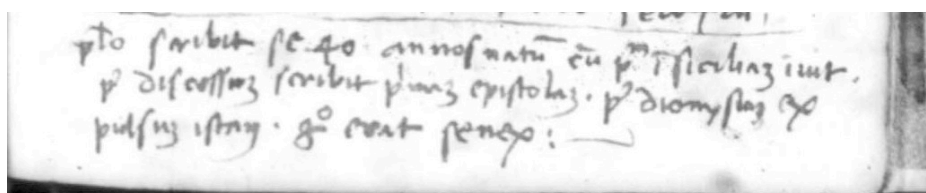 pl̄o scribit se 40 annos natū cū pᵐ ī siciliaꝫ iuit.
pꝰ discessuꝫ scribit p'maꝫ epistolaꝫ. pꝰ dionysiuꝫ ex
pulsuꝫ istaꝫ. gͦ erat senex: